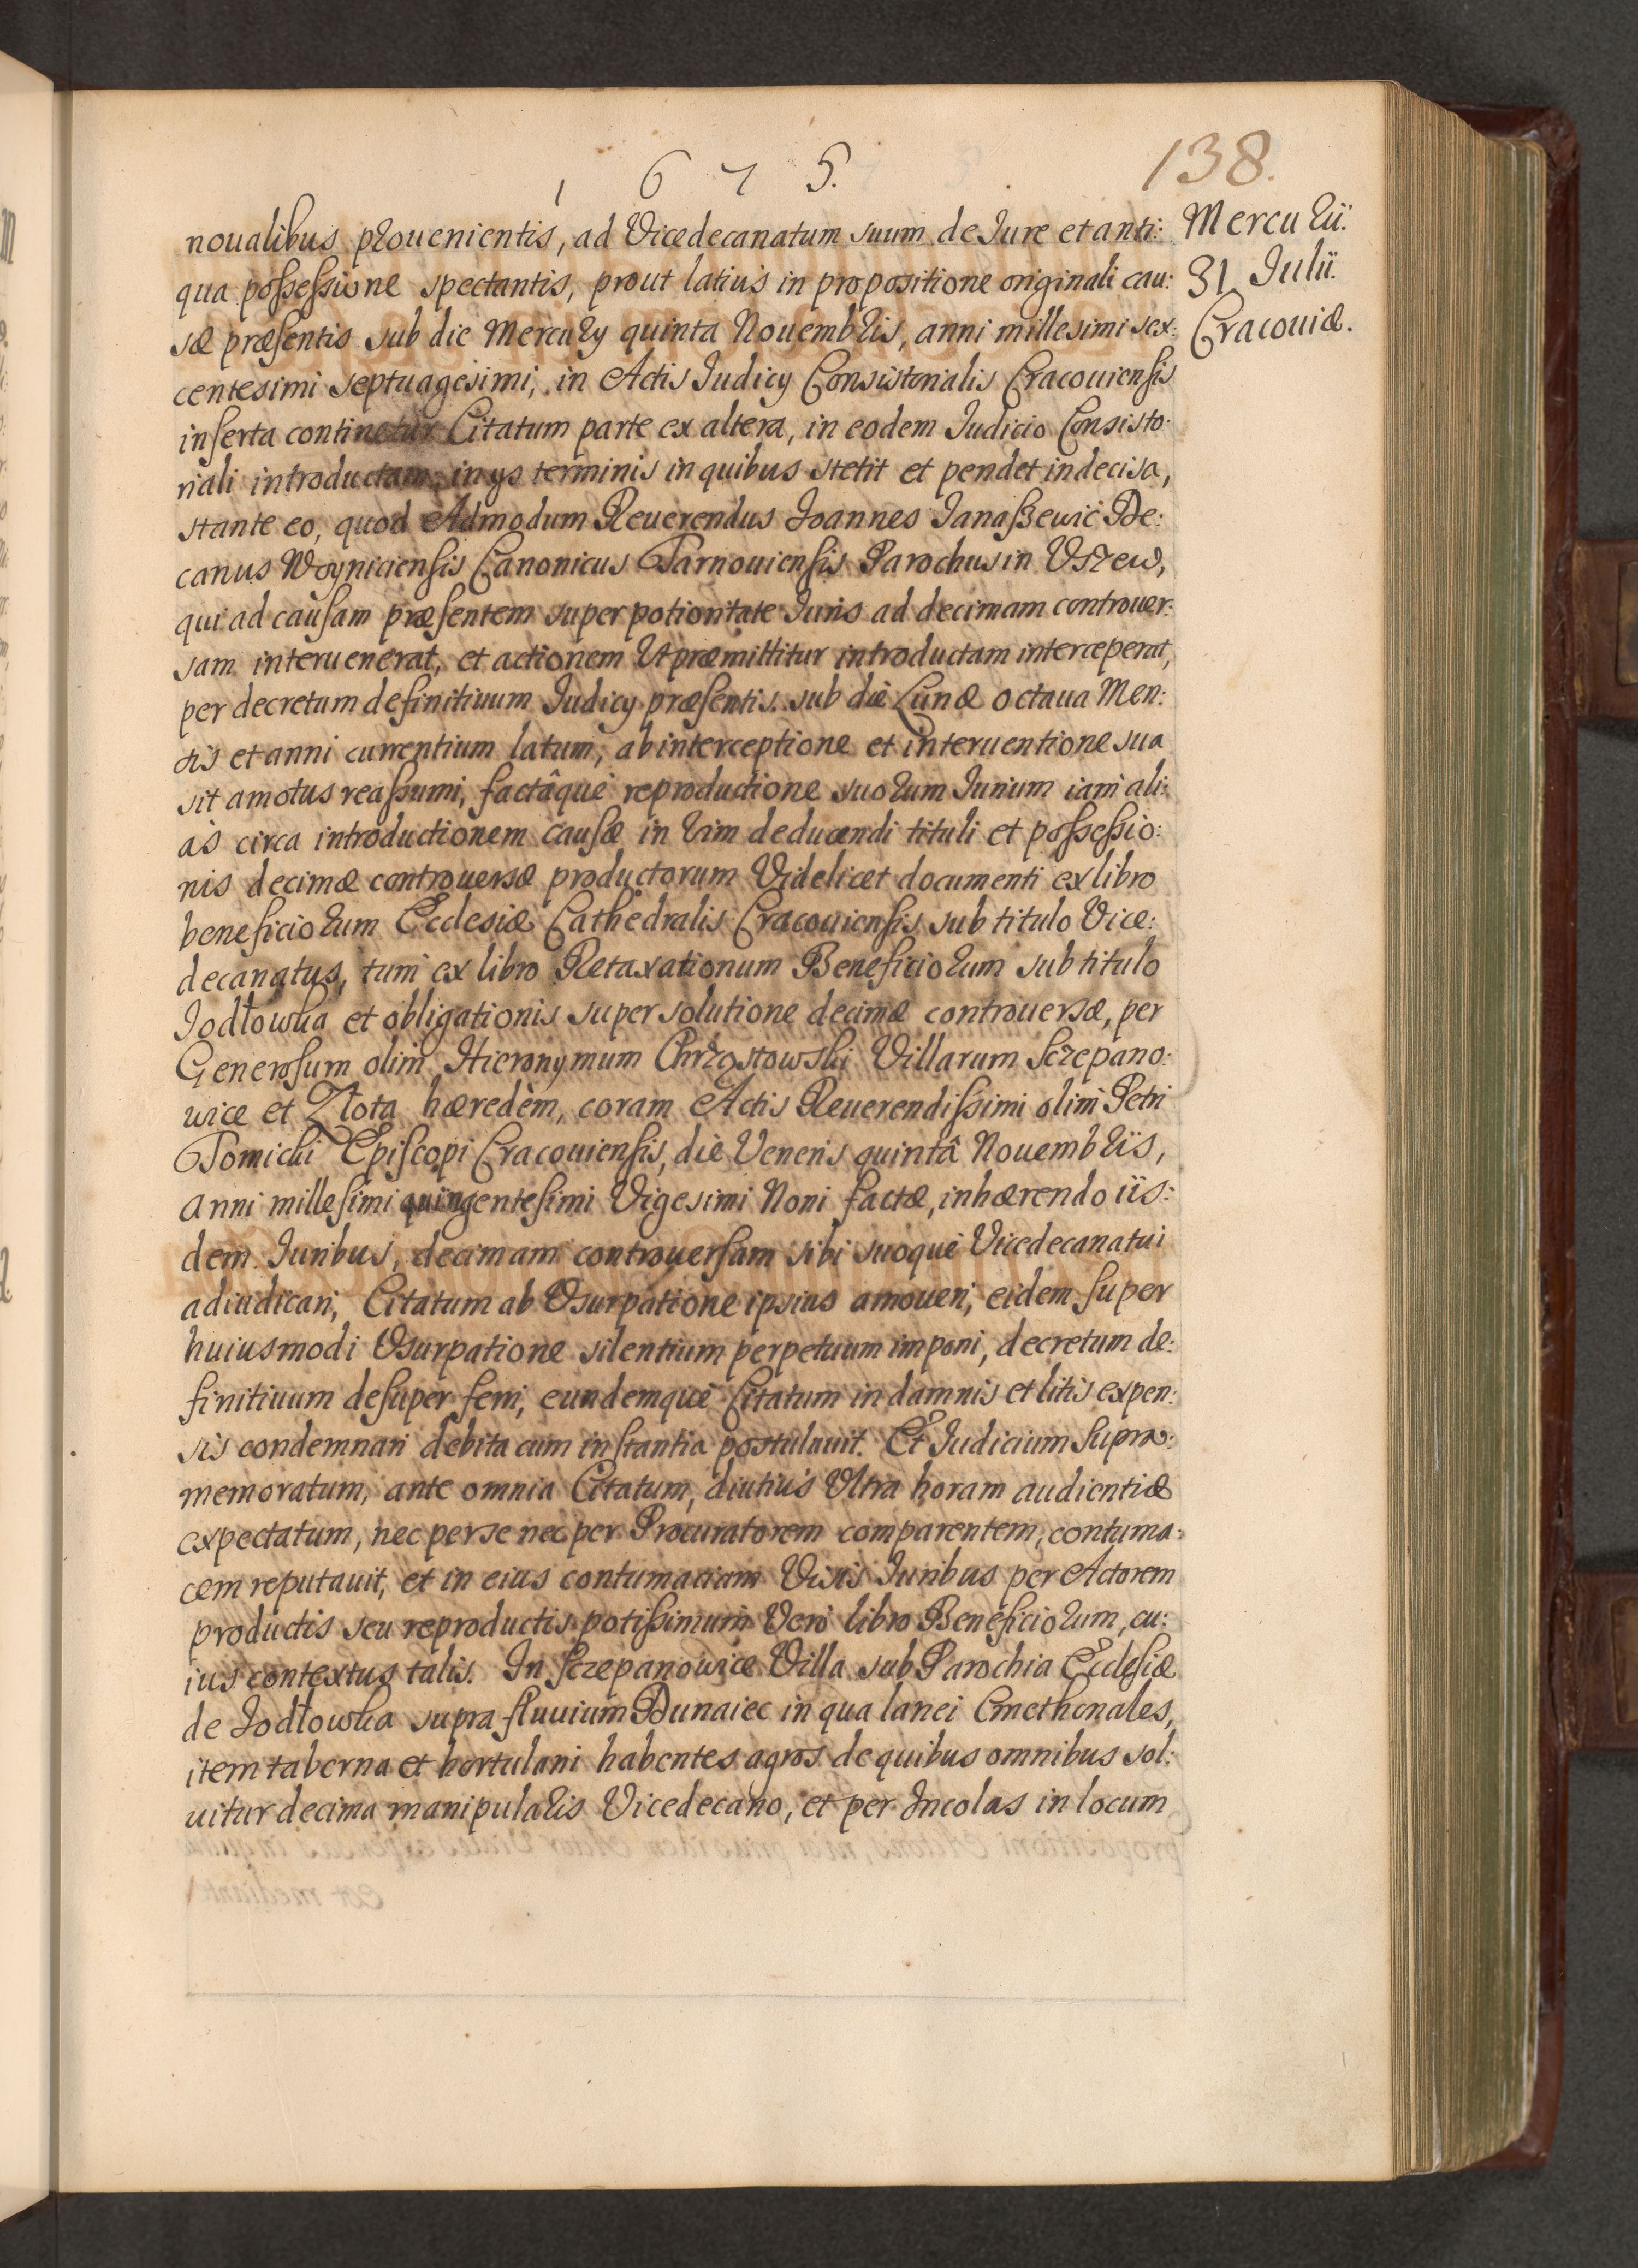 1675.
138.
Mercurii.
31 Iulii.
Cracouiæ.
noualibus prouenientis, ad Vicedecanatum suum de Iure et anti:
qua possessione spectantis, prout latius in propositione originali cau:
sæ præsentis sub die Mercury quinta Nouembris, anni millesimi sex:
centesimi septuagesimi, in Actis Iudicy Consistorialis Cracouiensis
inserta continetur Citatum parte ex altera, in eodem Iudicio Consisto:
riali introductam, in ys terminis in quibus stetit et pendet indecisa,
stante eo, quod Admodum Reuerendus Ioannes Ianaszewic De:
canus Woyniciensis Canonicus Tarnouiensis Parochus in Vszew,
qui ad causam præsentem super potioritate Iuris ad decimam controuer:
sam interuenerat, et actionem Vt præmittitur introductam interceperat,
per decretum definitiuum Iudicy præsentis sub die Lunæ octaua Men:
sis et anni currentium latum, ab interceptione et interuentione sua
sit amotus reassumi, factâque reproductione suorum Iurium iam ali:
as circa introductionem causæ in Vim deducendi tituli et possessio:
nis decimæ controuersæ productorum Videlicet documenti ex libro
beneficiorum Ecclesiæ Cathedralis Cracouiensis sub titulo Vice:
decanatus, tum ex libro Retaxationum Beneficiorum sub titulo
Iodłowka et obligationis super solutione decimæ controuersæ, per
Generosum olim Hieronymum Chrzostowski Villarum Sczepano:
wice et Zlota hæredem, coram Actis Reuerendissimi olim Petri
Tomicki Episcopi Cracouiensis, die Veneris quintâ Nouembris,
anni millesimi quingentesimi Vigesimi Noni factæ, inhærendo iis:
dem Iuribus, decimam controuersam sibi suoque Vicedecanatui
adiudicari, Citatum ab Vsurpatione ipsius amoueri, eidem super
huiusmodi Vsurpatione silentium perpetuum imponi, decretum de:
finitiuum desuper ferri, eundemque Citatum in damnis et litis expen:
sis condemnari debita cum instantia postulauit. Et Iudicium Supra:
memoratum, ante omnia Citatum, diutius Vltra horam audientiæ
expectatum, nec per se nec per Procuratorem comparentem, contuma:
cem reputauit, et in eius contumaciam Visis Iuribus per Actorem
productis seu reproductis potissimum Vero libro Beneficiorum, cu:
ius contextus talis. In Sczepanowice Villa sub Parochia Ecclesiæ
de Iodłowka supra fluuium Dunaiec in qua lanei Cmethonales,
item taberna et hortulani habentes agros de quibus omnibus sol:
uitur decima manipularis Vicedecano, et per Incolas in locum